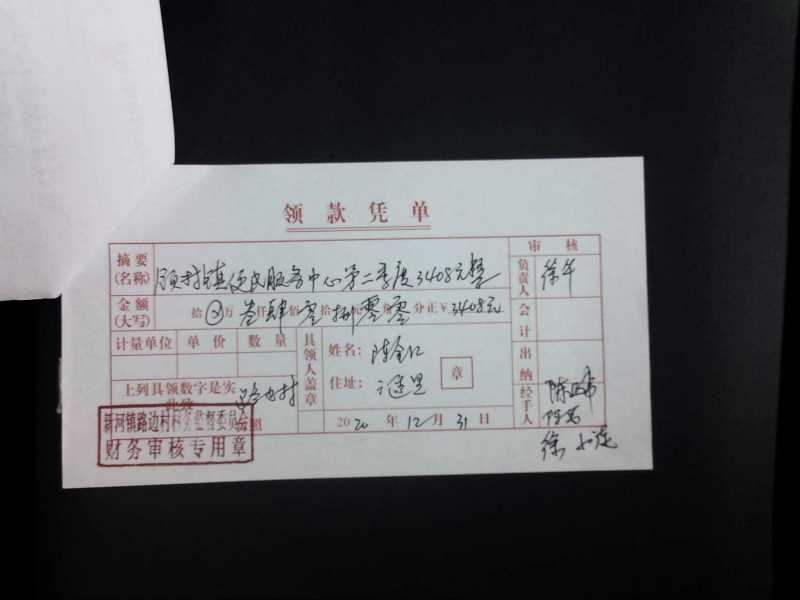 领款凭单
摘要(名称) 镇便民服务中心第二季度3408元整
审核
负责人 徐
金额(大写) 拾ⓧ万叁仟肆佰零拾捌元零角零分正¥3408元
会计
计量单位 单价 数量
具领人盖章 姓名: 陈金仁
住址: 章
出纳
上列具领数字是实
此致
路边村
台照
2020年12月31日
经手人 陈
徐
新河镇路边村村务监督委员会
财务审核专用章